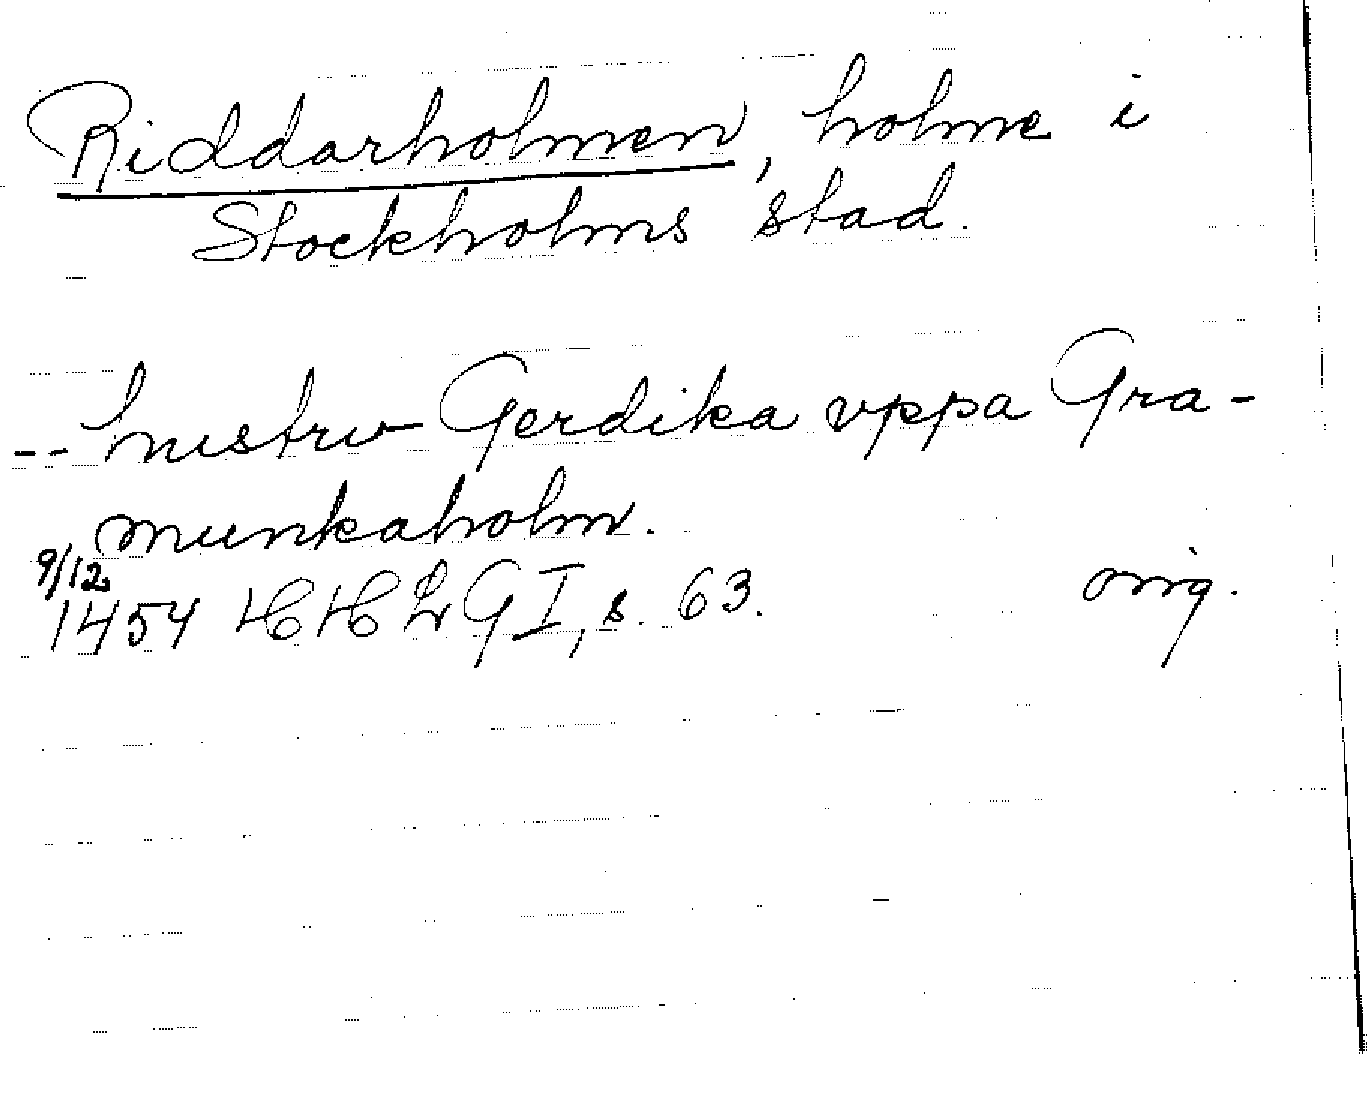 Riddarholmen, holme i
Stockholms stad.
-- hustrv Gerdika vppa Gra-
munkaholm.
9/12
1454 HHLGI, s. 63. orig.